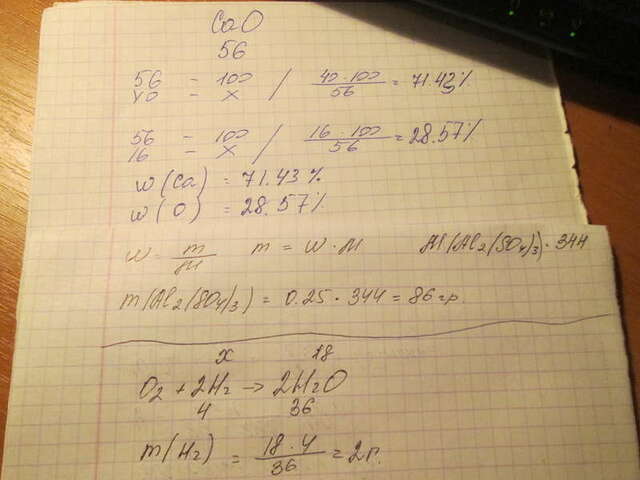 CaO
56
56 – 100 / 40·100/56 = 71.43%
40 – x
56 – 100 / 16·100/56 = 28.57%
16 – x
w(Ca) = 71.43%
w(O) = 28.57%
w = m/M m = w·M M(Al2(SO4)3) = 344
m(Al2(SO4)3) = 0.25·344 = 86гр.
x 18
O2 + 2H2 → 2H2O
4 36
m(H2) = 18·4/36 = 2г.